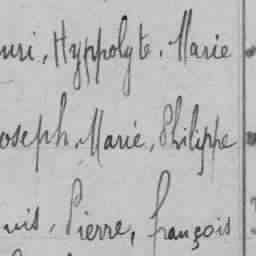 uri, Hyppolyte. Marie
oseph, Marie, Philippe
uis, Pierre, François